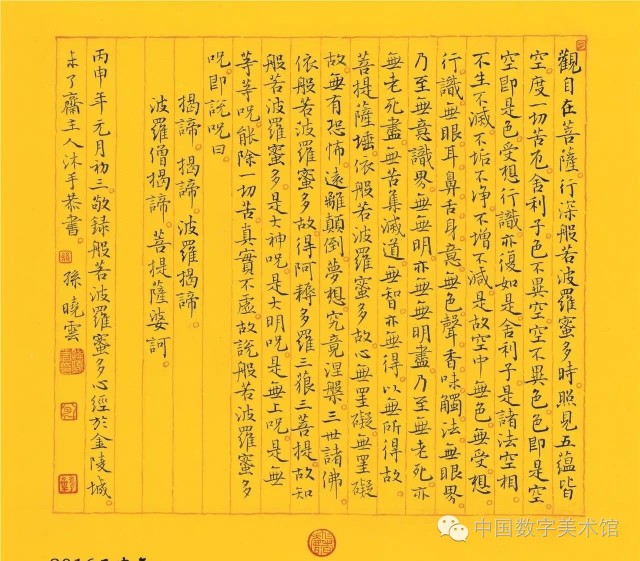 觀自在菩薩。行深般若波羅蜜多時。照見五蘊皆
空。度一切苦厄。舍利子。色不異空。空不異色。色即是空。
空即是色。受想行識。亦復如是。舍利子。是諸法空相。
不生不滅。不垢不净。不增不減。是故空中無色。無受想
行識。無眼耳鼻舌身意。無色聲香味觸法。無眼界。
乃至無意識界。無無明。亦無無明盡。乃至無老死。亦
無老死盡。無苦集滅道。無智亦無得。以無所得故。
菩提薩埵。依般若波羅蜜多故。心無罣礙。無罣礙
故。無有恐怖。遠離顛倒夢想。究竟涅槃。三世諸佛。
依般若波羅蜜多故。得阿耨多羅三藐三菩提。故知
般若波羅蜜多。是大神呪。是大明呪。是無上呪。是無
等等呪。能除一切苦。真實不虛。故說般若波羅蜜多
呪。即說呪曰
揭諦。揭諦。波羅揭諦。
波羅僧揭諦。菩提薩婆訶。
丙申年元月初三敬録般若波羅蜜多心經於金陵城。
齋主人沐手恭書。孫曉雲
中国数字美术馆